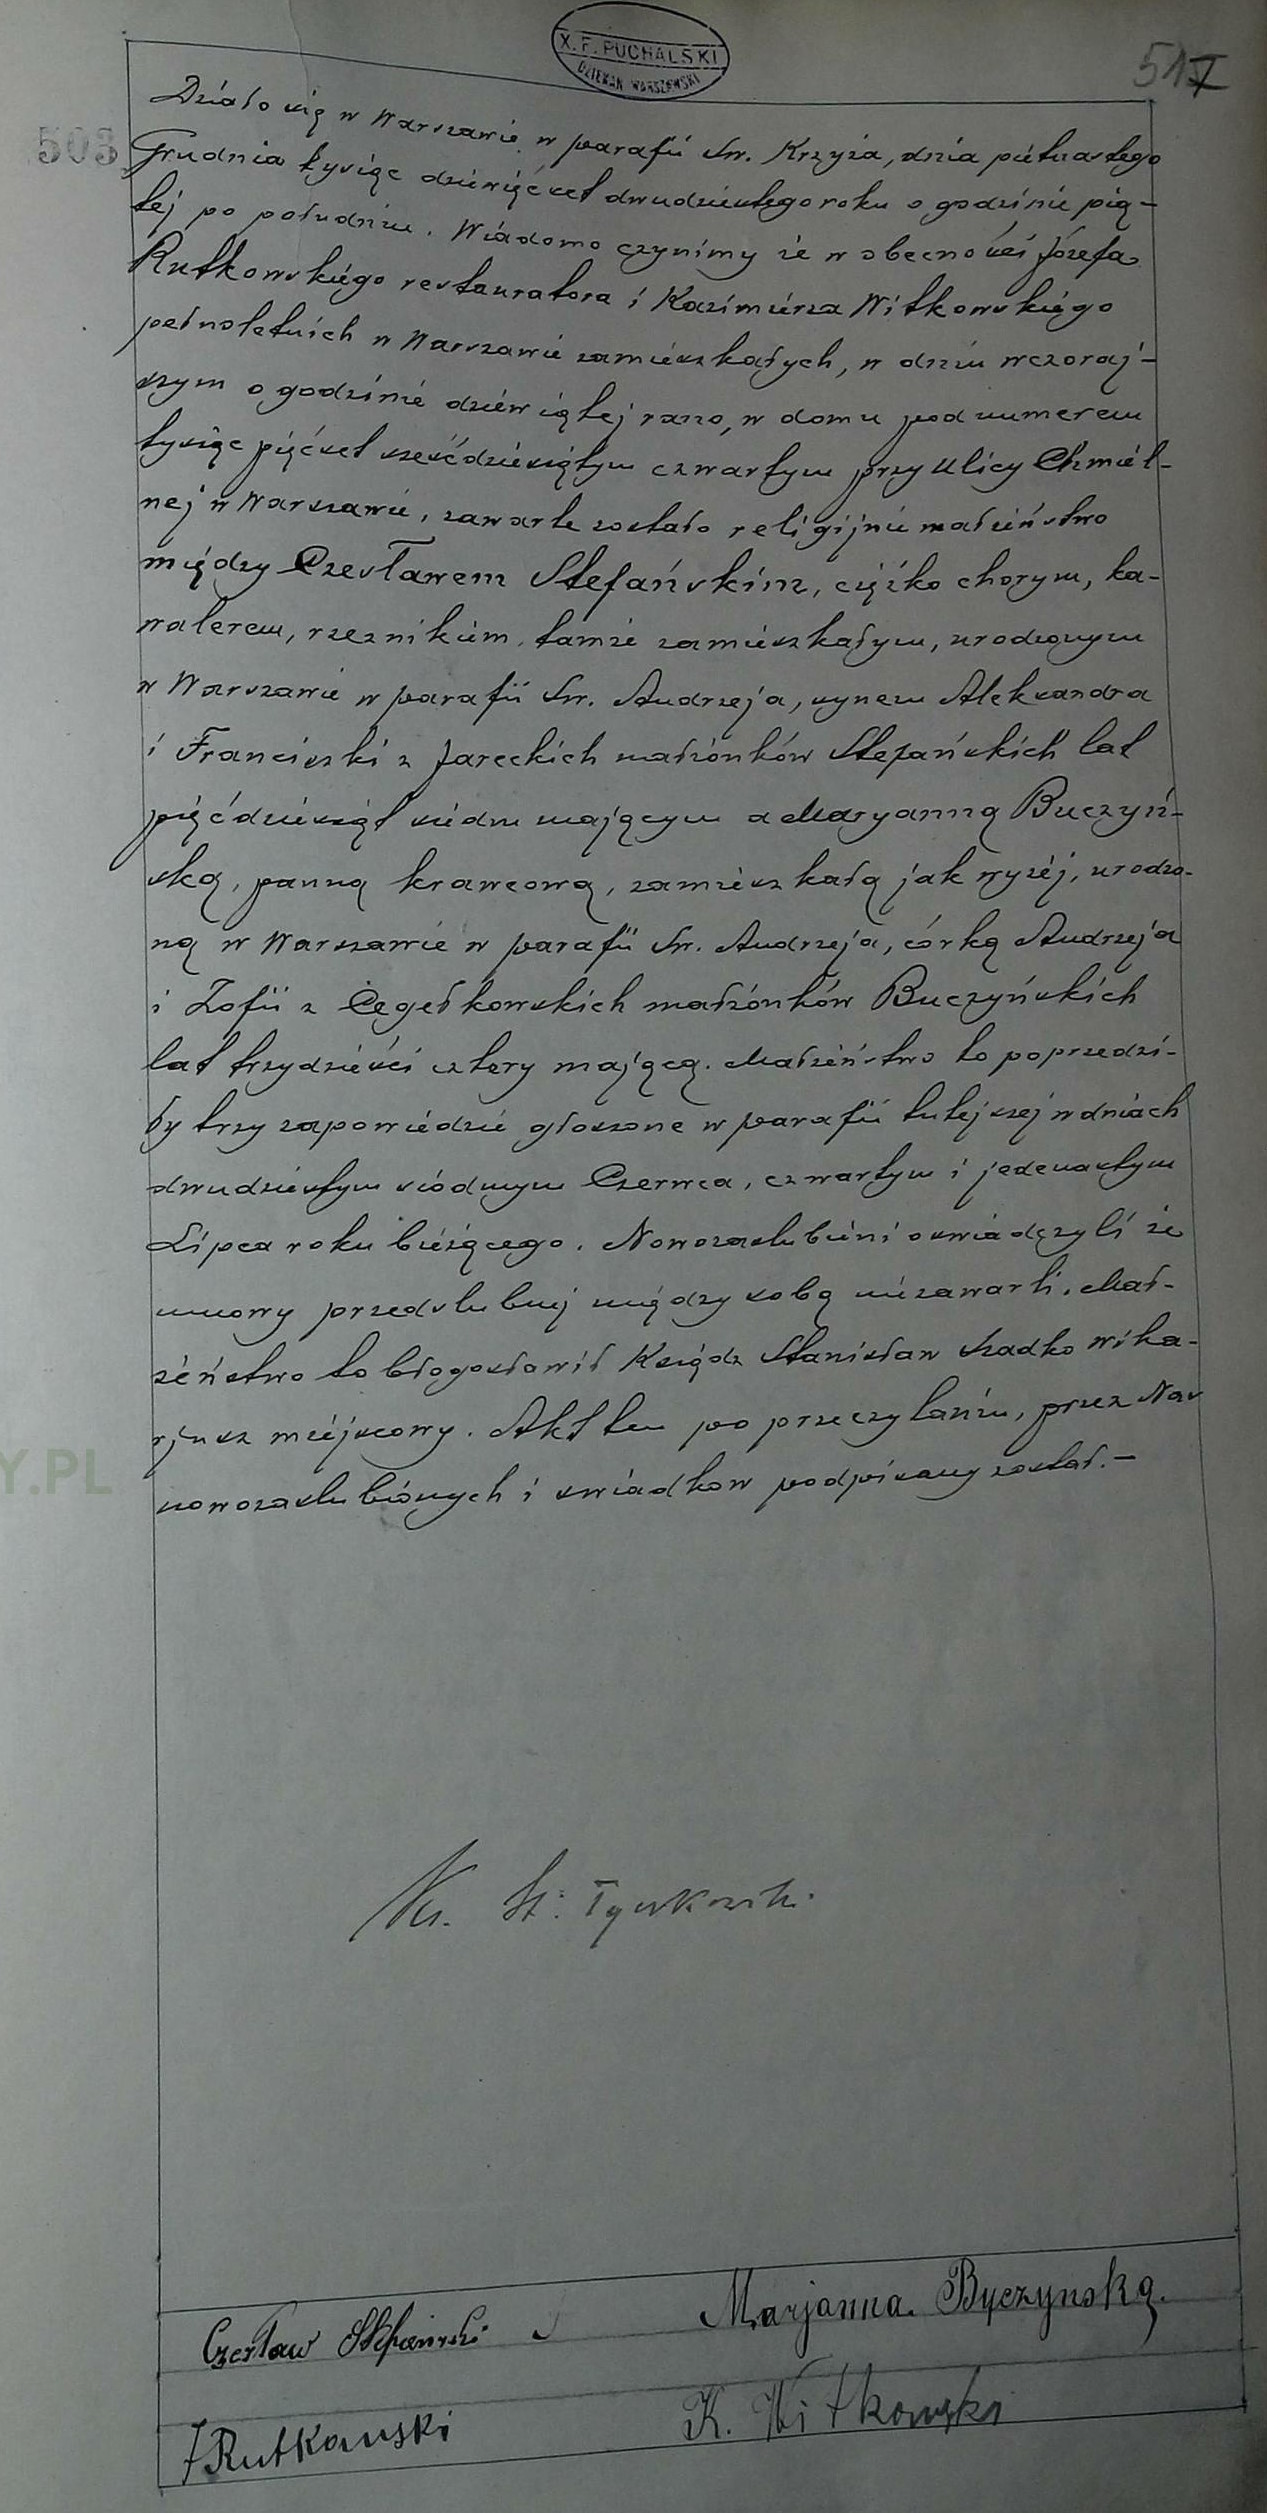 X. F. PUCHALSKI
DZIEKAN WARSZAWSKI
517
503
Działo się w Warszawie w parafii Św. Krzyża, dnia piętnastego
Grudnia tysiąc dziewięćset dwudziestego roku o godzinie pią-
tej po południu. Wiadomo czynimy że w obecności Józefa
Rutkowskiego restauratora i Kazimierza Witkowskiego
pełnoletnich w Warszawie zamieszkałych, w dniu wczoraj-
szym o godzinie dziewiątej rano, w domu pod numerem
tysiąc pięćset sześćdziesiątym czwartym przy ulicy Chmiel-
nej w Warszawie, zawarte zostało religijnie małżeństwo
między Czesławem Stefańskim, ciężko chorym, ka-
walerem, rzeznikiem, tamże zamieszkałym, urodzonym
w Warszawie w parafii Św. Andrzeja, synem Aleksandra
i Franciszki z Jareckich małżonków Stefańskich lat
pięćdziesiąt siedm mającym a Maryanną Buczyń-
ską, panną krawcową, zamieszkałą jak wyżej, urodzo-
ną w Warszawie w parafii Św. Andrzeja, córką Andrzeja
i Zofii z Cegełkowskich małżonków Buczyńskich
lat trzydzieści cztery mającą. Małżeństwo to poprzedzi-
ły trzy zapowiedzie głoszone w parafii tutejszej w dniach
dwudziestym siódmym Czerwca, czwartym i jedenastym
Lipca roku bieżącego. Nowozaslubieni oswiadczyli że
umowy przedslubnej między sobą niezawarli. Mał-
żeństwo to błogosławił Ksiądz Stanisław Szadko wika-
rjusz miejscowy. Akt ten po przeczytaniu, przez Nas
nowozaslubionych i swiadkow podpisany został.—
Ks. St.
Czesław Stefański
Marjanna Byczynską.
J Rutkowski
K. Witkowski
Y.PL